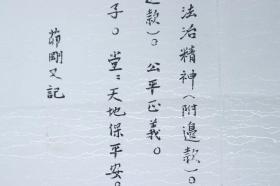 法治精神(附邊款)。
款)。公平正義。
子。堂〻天地保平安。
剛又記